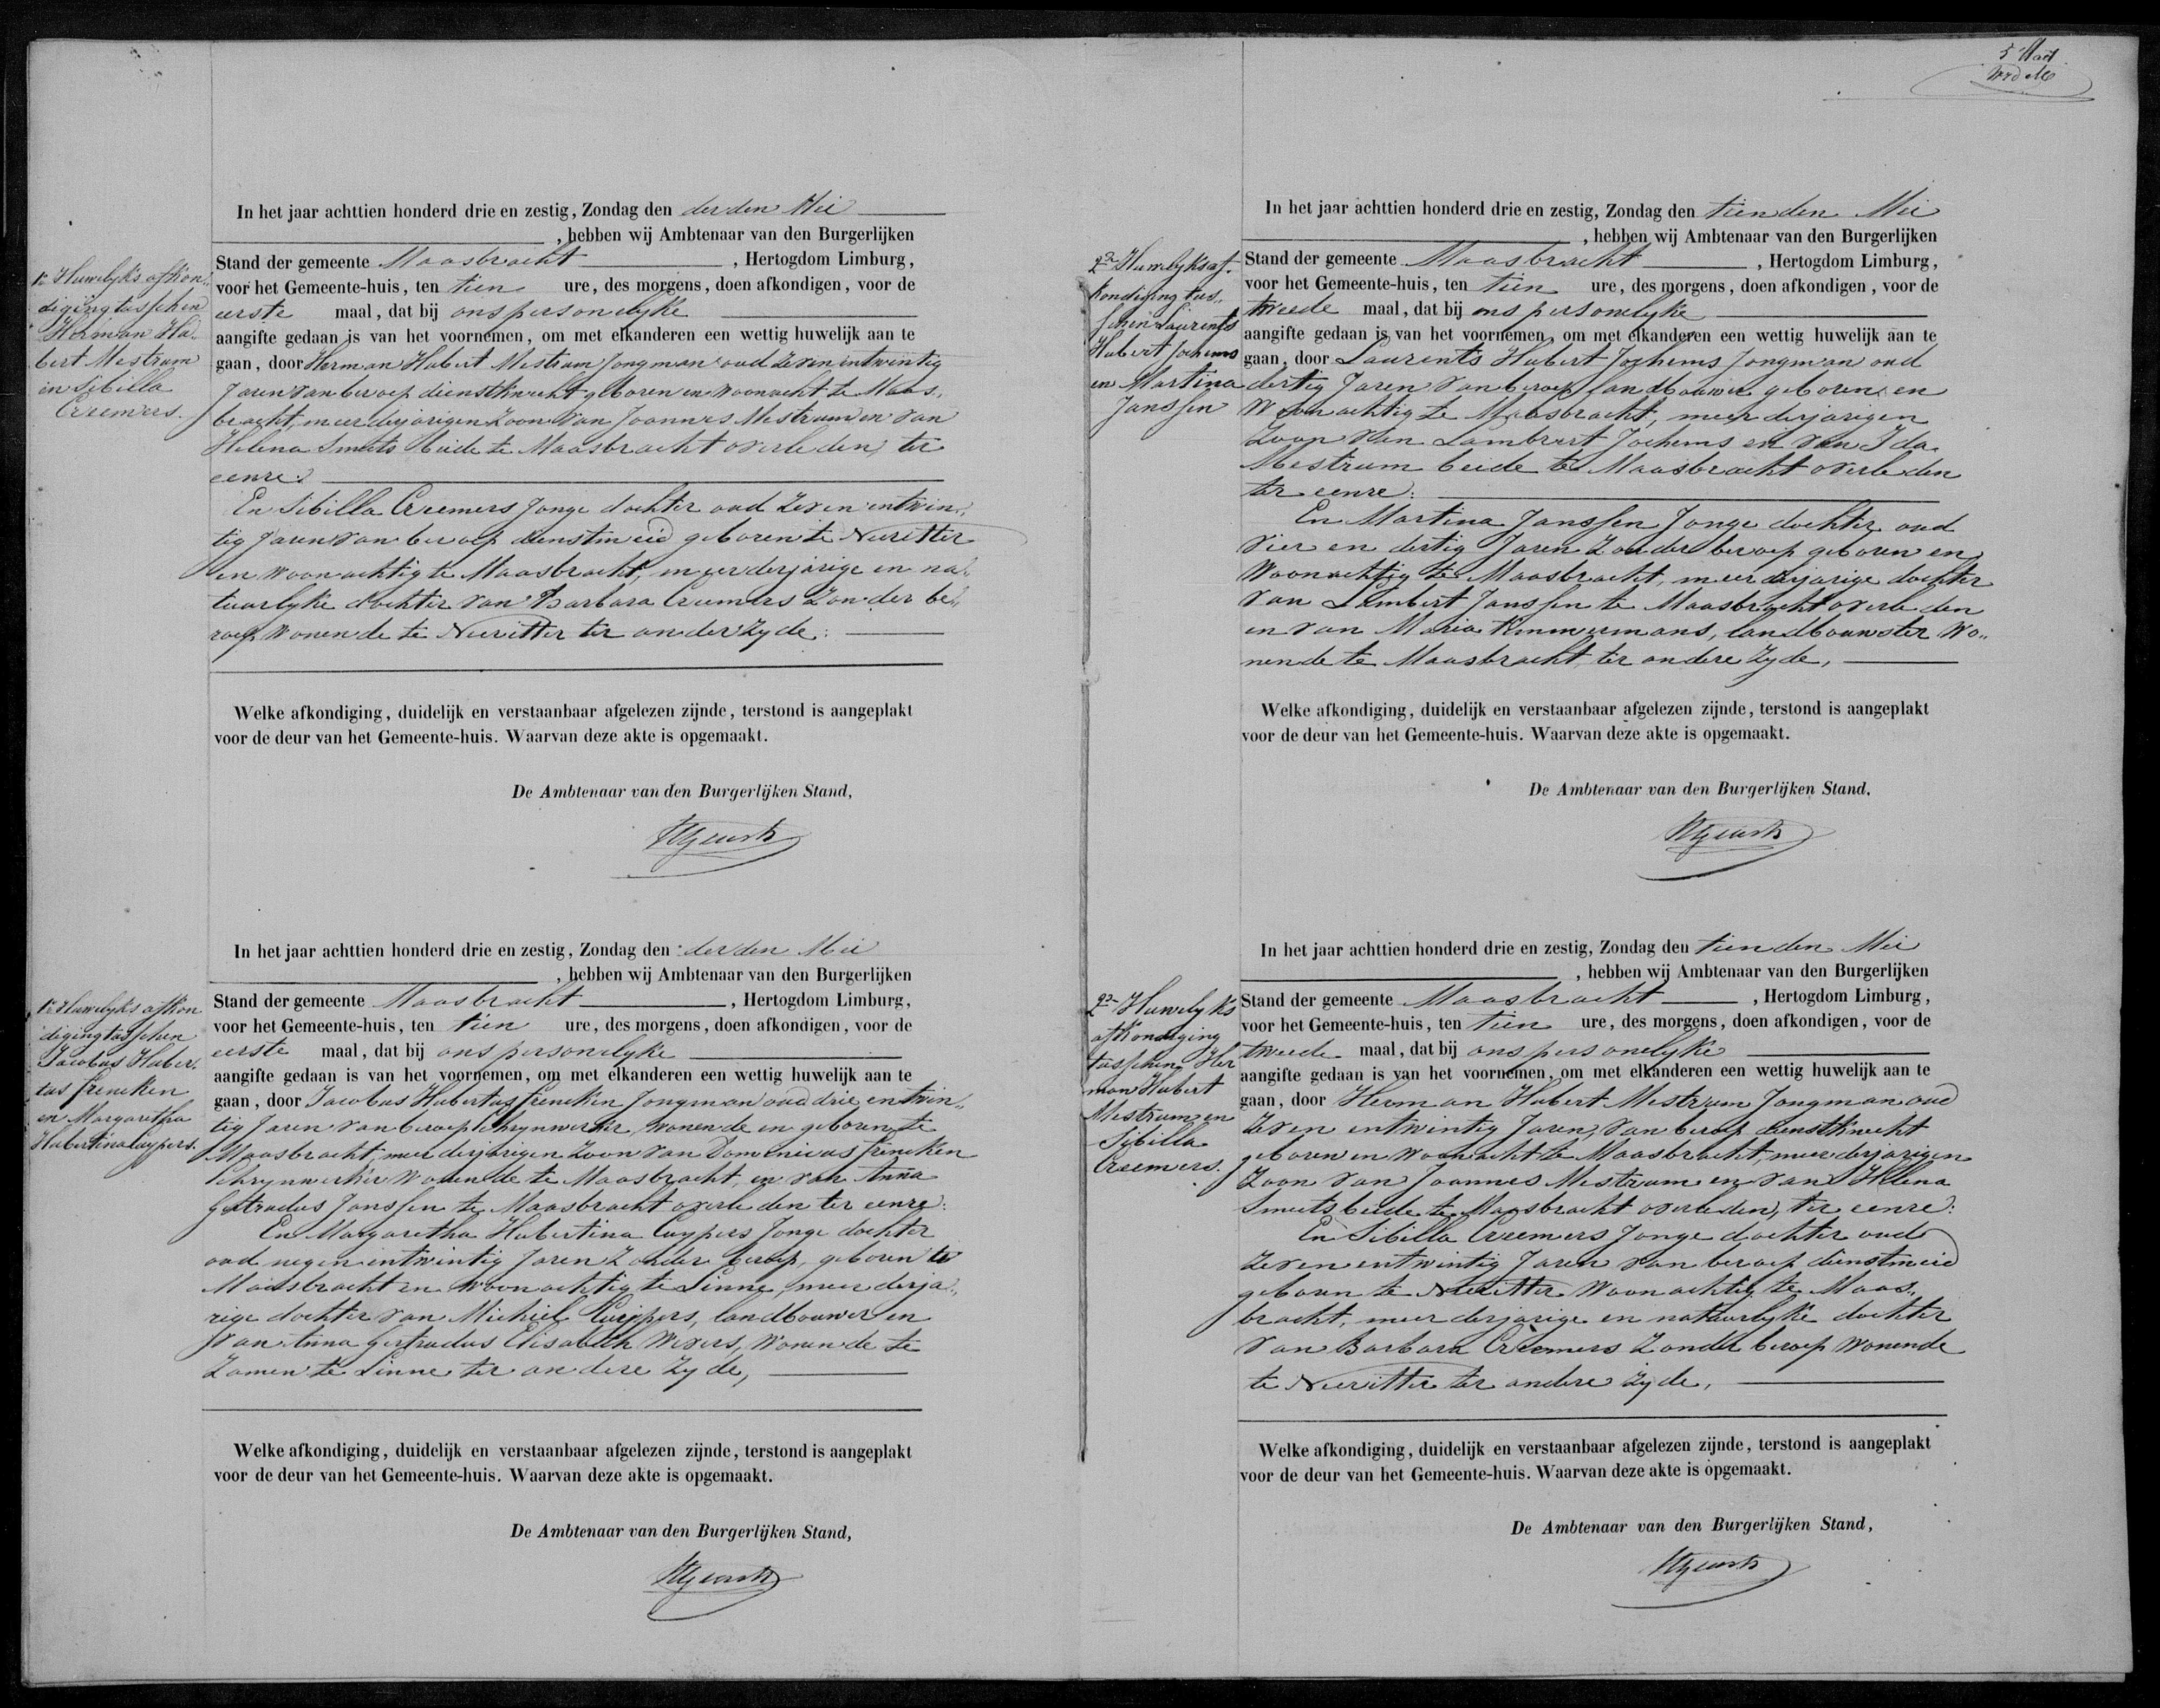 In het jaar achttien honderd drie en zestig, Zondag den derden Mei
, hebben wij Ambtenaar van den Burgerlijken
Stand der gemeente Maasbracht , Hertogdom Limburg,
voor het Gemeente-huis, ten tien ure, des morgens, doen afkondigen, voor de
eerste maal, dat bij ons personelyke
aangifte gedaan is van het voornemen, om met elkanderen een wettig huwelijk aan te
gaan, door Herman Hubert Mestrum Jongman oud zeven entwintig
Jaren van beroep dienstknecht geboren en woonacht te Maas„
bracht, meerderjarigen Zoon van Joannes Mestrum en van
Helena Smeets beide te Maasbracht overleden, ter
eenre:
En Sibilla Creemers Jonge dochter oud zeven entwin„
tig Jaren van beroep dienstmeid geboren te Neeritter
en woonachtig te Maasbracht, meerderjarige en na„
tuurlyke dochter van Barbara Creemers Zonder be„
roep wonende te Neeritter ter ander Zyde:
1e Huwelyks afkon„
diging tusschen
Herman Hu„
bert Mestrum
en Sibilla
Creemers.
Welke afkondiging, duidelijk en verstaanbaar afgelezen zijnde, terstond is aangeplakt
voor de deur van het Gemeente-huis. Waarvan deze akte is opgemaakt.
De Ambtenaar van den Burgerlijken Stand,
In het jaar achttien honderd drie en zestig, Zondag den derden Mei
, hebben wij Ambtenaar van den Burgerlijken
Stand der gemeente Maasbracht , Hertogdom Limburg,
voor het Gemeente-huis, ten tien ure, des morgens, doen afkondigen, voor de
eerste maal, dat bij ons personelyke
aangifte gedaan is van het voornemen, om met elkanderen een wettig huwelijk aan te
gaan, door Jacobus Hubertus Frencken Jongman oud drie entwin„
tig Jaren van beroep schrynwerker, wonende en geboren te
Maasbracht, meerderjarigen Zoon van Dominicus Frencken
Schrynwerker wonende te Maasbracht, en van Anna
Gertrudus Janssen te Maasbracht overleden ter eenre:
En Margaretha Hubertina Cuypers Jonge dochter
oud negen entwintig Jaren Zonder beroep, geboren te
Maasbracht en woonachtig te Linne, meerderja„
rige dochter van Michiel Cuypers, landbouwer en
van Anna Gertrudus Elisabeth Wevers, wonende te
Zamen te Linne ter andere Zyde,
1e Huwelyks afkon
diging tusschen
Jacobus Huber„
tus Frencken
en Margaretha
Hubertina Cuypers.
Welke afkondiging, duidelijk en verstaanbaar afgelezen zijnde, terstond is aangeplakt
voor de deur van het Gemeente-huis. Waarvan deze akte is opgemaakt.
De Ambtenaar van den Burgerlijken Stand,
In het jaar achttien honderd drie en zestig, Zondag den tienden Mei
, hebben wij Ambtenaar van den Burgerlijken
Stand der gemeente Maasbracht , Hertogdom Limburg,
voor het Gemeente-huis, ten tien ure, des morgens, doen afkondigen, voor de
tweede maal, dat bij ons personelyke
aangifte gedaan is van het voornemen, om met elkanderen een wettig huwelijk aan te
gaan, door Laurents Hubert Jochems Jongman oud
dertig Jaren van beroep landbouwer geboren en
Woonachtig te Maasbracht, meerderjarigen
Zoon van Lambert Jochems en van Ida
Mestrum beide te Maasbracht overleden
ter eenre:
En Martina Janssen Jonge dochter oud
vier en dertig Jaren Zonder beroep geboren en
Woonachtig te Maasbracht, meerderjarige dochter
van Lambert Janssen te Maasbracht overleden
en van Maria Timmermans, landbouwster wo„
nende te Maasbracht ter andere Zyde,
2de Huwelyks af„
kondiging tus„
schen Laurents
Hubert Jochems
en Martina
Janssen
Welke afkondiging, duidelijk en verstaanbaar afgelezen zijnde, terstond is aangeplakt
voor de deur van het Gemeente-huis. Waarvan deze akte is opgemaakt.
De Ambtenaar van den Burgerlijken Stand.
In het jaar achttien honderd drie en zestig, Zondag den tienden Mei
, hebben wij Ambtenaar van den Burgerlijken
Stand der gemeente Maasbracht , Hertogdom Limburg,
voor het Gemeente-huis, ten tien ure, des morgens, doen afkondigen, voor de
tweede maal, dat bij ons personelyke
aangifte gedaan is van het voornemen, om met elkanderen een wettig huwelijk aan te
gaan, door Herman Hubert Mestrum Jongman oud
zeven entwintig Jaren, van beroep dienstknecht
geboren en woonacht te Maasbracht, meerderjarigen
Zoon van Joannes Mestrum en van Helena
Smeets beide te Maasbracht overleden, ter eenre:
En Sibilla Creemers Jonge dochter oud
zeven entwintig Jaren van beroep dienstmeid
geboren te Neeritter Woonachtig te Maas„
bracht, meerderjarige en natuurlyke dochter
van Barbara Creemers Zonder beroep wonende
te Neeritter ter andere Zyde,
2de Huwelyks
afkondiging
tusschen Her
man Hubert
Mestrum en
Sibilla
Creemers.
Welke afkondiging, duidelijk en verstaanbaar afgelezen zijnde, terstond is aangeplakt
voor de deur van het Gemeente-huis. Waarvan deze akte is opgemaakt.
De Ambtenaar van den Burgerlijken Stand,